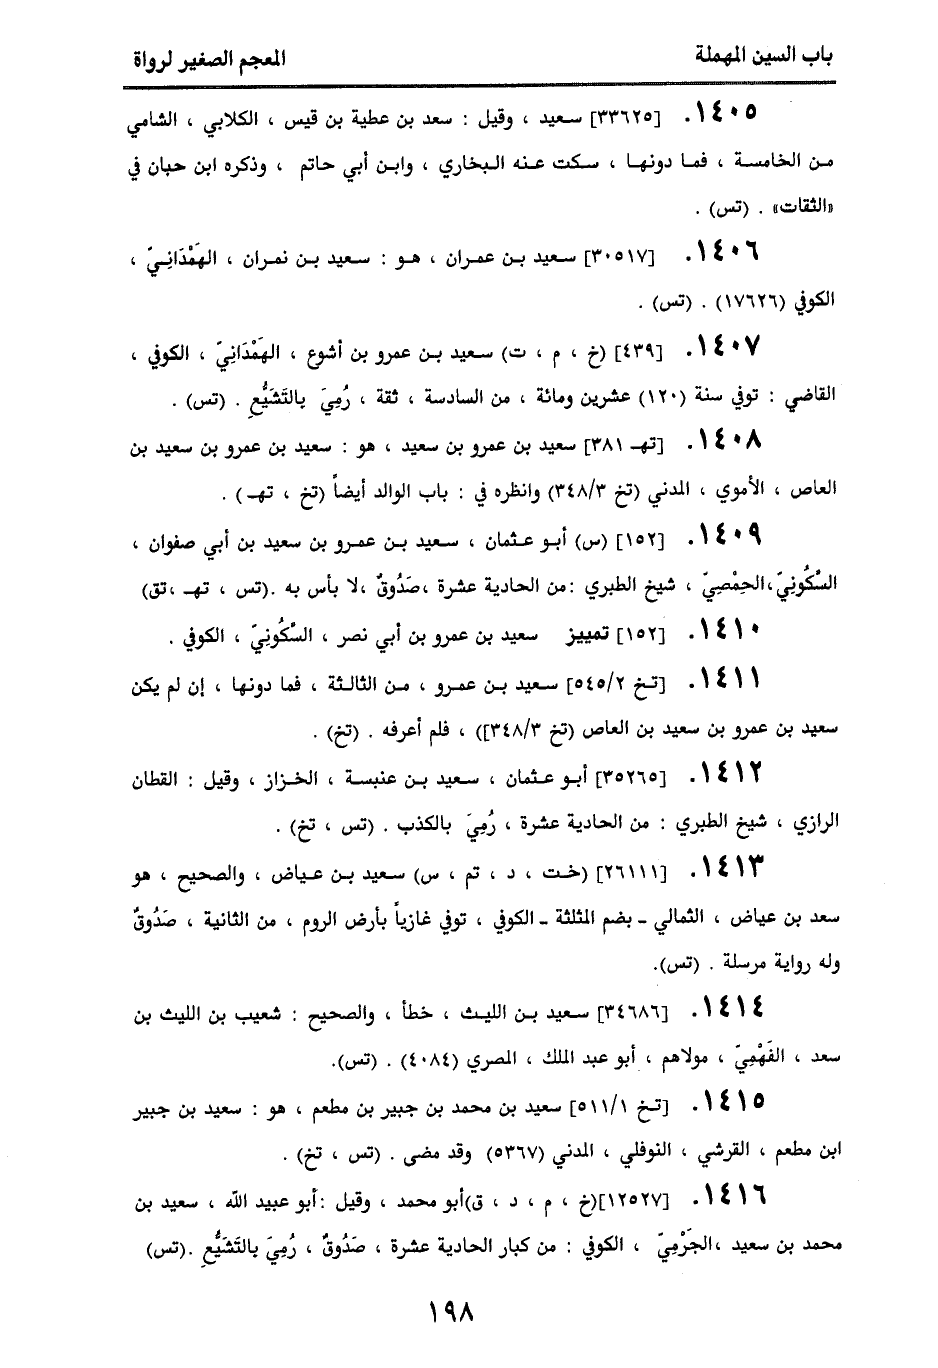 باب السين المهملة المعجم الصغير لرواة
١٤٠٥. [٣٣٦٢٥] سعيد ، وقيل : سعد بن عطية بن قيس ، الكلابي ، الشامي
من الخامسة ، فما دونها ، سكت عنه البخاري ، وابن أبي حاتم ، وذكره ابن حبان في
«الثقات» . (تس) .
١٤٠٦. [٣٠٥١٧] سعيد بن عمران ، هو : سعيد بن نمران ، الهَمْدَانِيّ ،
الكوفي (١٧٦٢٦) . (تس) .
١٤٠٧. [٤٣٩] (خ ، م ، ت) سعيد بن عمرو بن أشوع ، الهَمْدَانِيّ ، الكوفي ،
القاضي : توفي سنة (١٢٠) عشرين ومائة ، من السادسة ، ثقة ، رُمِيَ بالتَشَيُّعِ . (تس) .
١٤٠٨. [تهـ ٣٨١] سعيد بن عمرو بن سعيد ، هو : سعيد بن عمرو بن سعيد بن
العاص ، الأموي ، المدني (تخ ٣٤٨/٣) وانظره في : باب الوالد أيضاً (تخ ، تهـ) .
١٤٠٩. [١٥٢] (س) أبو عثمان ، سعيد بن عمرو بن سعيد بن أبي صفوان ،
السَّكُونِيّ ،الحِمْصِيّ ، شيخ الطبري :من الحادية عشرة ،صَدُوقٌ ،لا بأس به .(تس ، تهـ ،تق)
١٤١٠. [١٥٢] تمييز سعيد بن عمرو بن أبي نصر ، السَّكُونِيّ ، الكوفي .
١٤١١. [تخ ٥٤٥/٢] سعيد بن عمرو ، من الثالثة ، فما دونها ، إن لم يكن
سعيد بن عمرو بن سعيد بن العاص (تخ ٣٤٨/٣]) ، فلم أعرفه . (تخ) .
١٤١٢. [٣٥٢٦٥] أبو عثمان ، سعيد بن عنبسة ، الخزاز ، وقيل : القطان
الرازي ، شيخ الطبري : من الحادية عشرة ، رُمِيَ بالكذب . (تس ، تخ) .
١٤١٣. [٢٦١١١] (خت ، د ، تم ، س) سعيد بن عياض ، والصحيح ، هو
سعد بن عياض ، الثمالي ـ بضم المثلثة ـ الكوفي ، توفي غازياً بأرض الروم ، من الثانية ، صَدُوقٌ
وله رواية مرسلة . (تس).
١٤١٤. [٣٤٦٨٦] سعيد بن الليث ، خطأ ، والصحيح : شعيب بن الليث بن
سعد ، الفَهْمِيّ ، مولاهم ، أبو عبد الملك ، المصري (٤٠٨٤) . (تس).
١٤١٥. [تخ ٥١١/١] سعيد بن محمد بن جبير بن مطعم ، هو : سعيد بن جبير
ابن مطعم ، القرشي ، النوفلي ، المدني (٥٣٦٧) وقد مضى . (تس ، تخ) .
١٤١٦. [١٢٥٢٧](خ ، م ، د ، ق)أبو محمد ، وقيل :أبو عبيد الله ، سعيد بن
محمد بن سعيد ،الجَرْمِيّ ، الكوفي : من كبار الحادية عشرة ، صَدُوقٌ ، رُمِيَ بالتَشَيُّعِ .(تس)
١٩٨